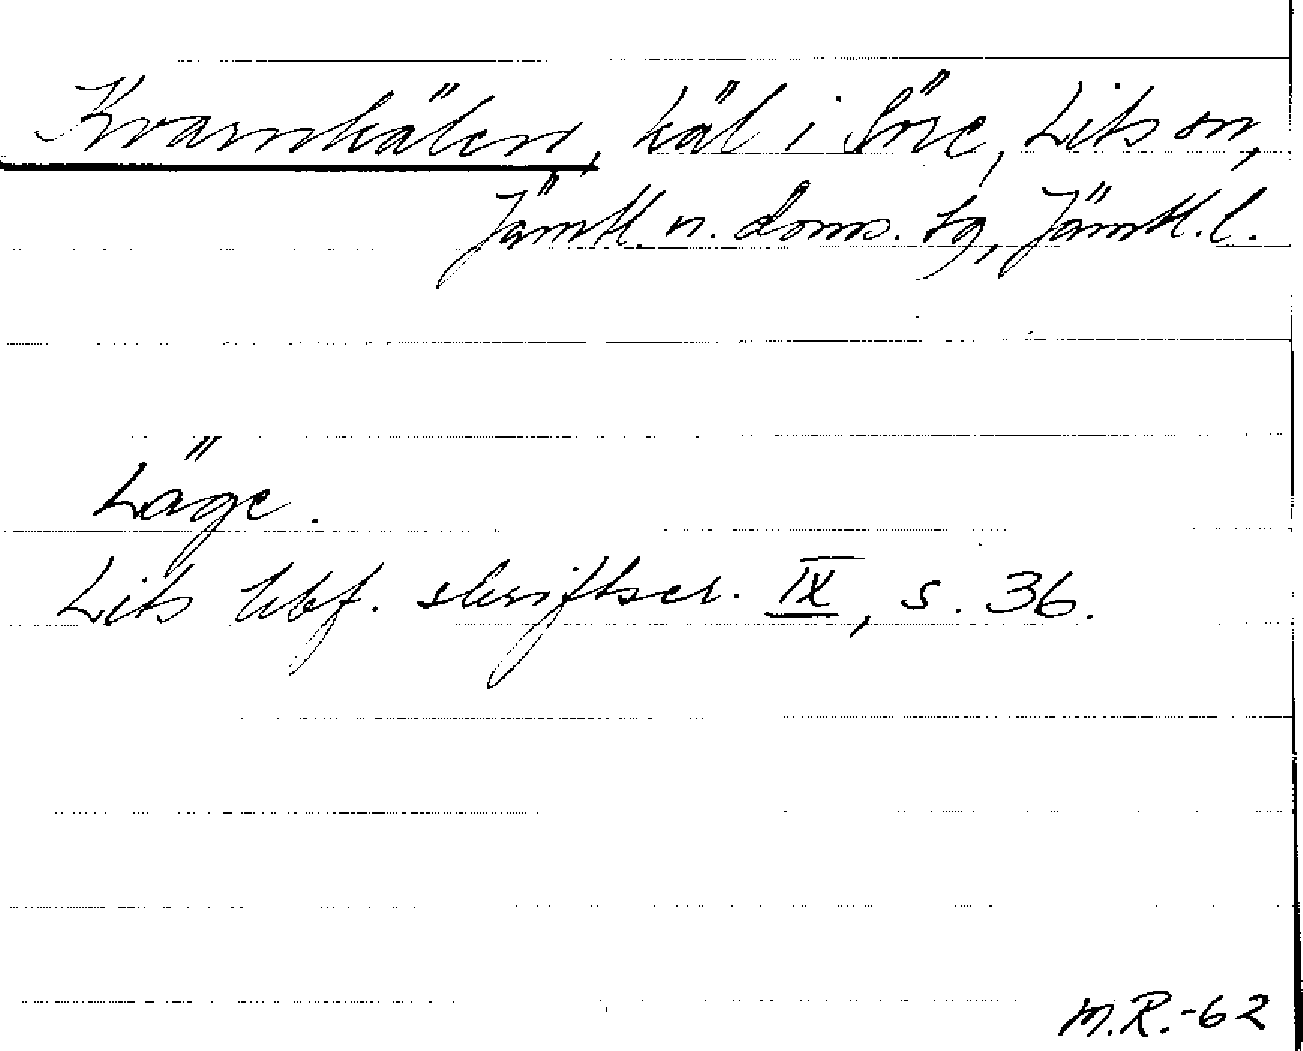 Kvarnhälen, häl i Söre, Lits sn,
Jämtl. n. doms. tg, Jämtl. l.
Läge.
Lits hbf. skriftser. IX, s. 36.
M.R.-62